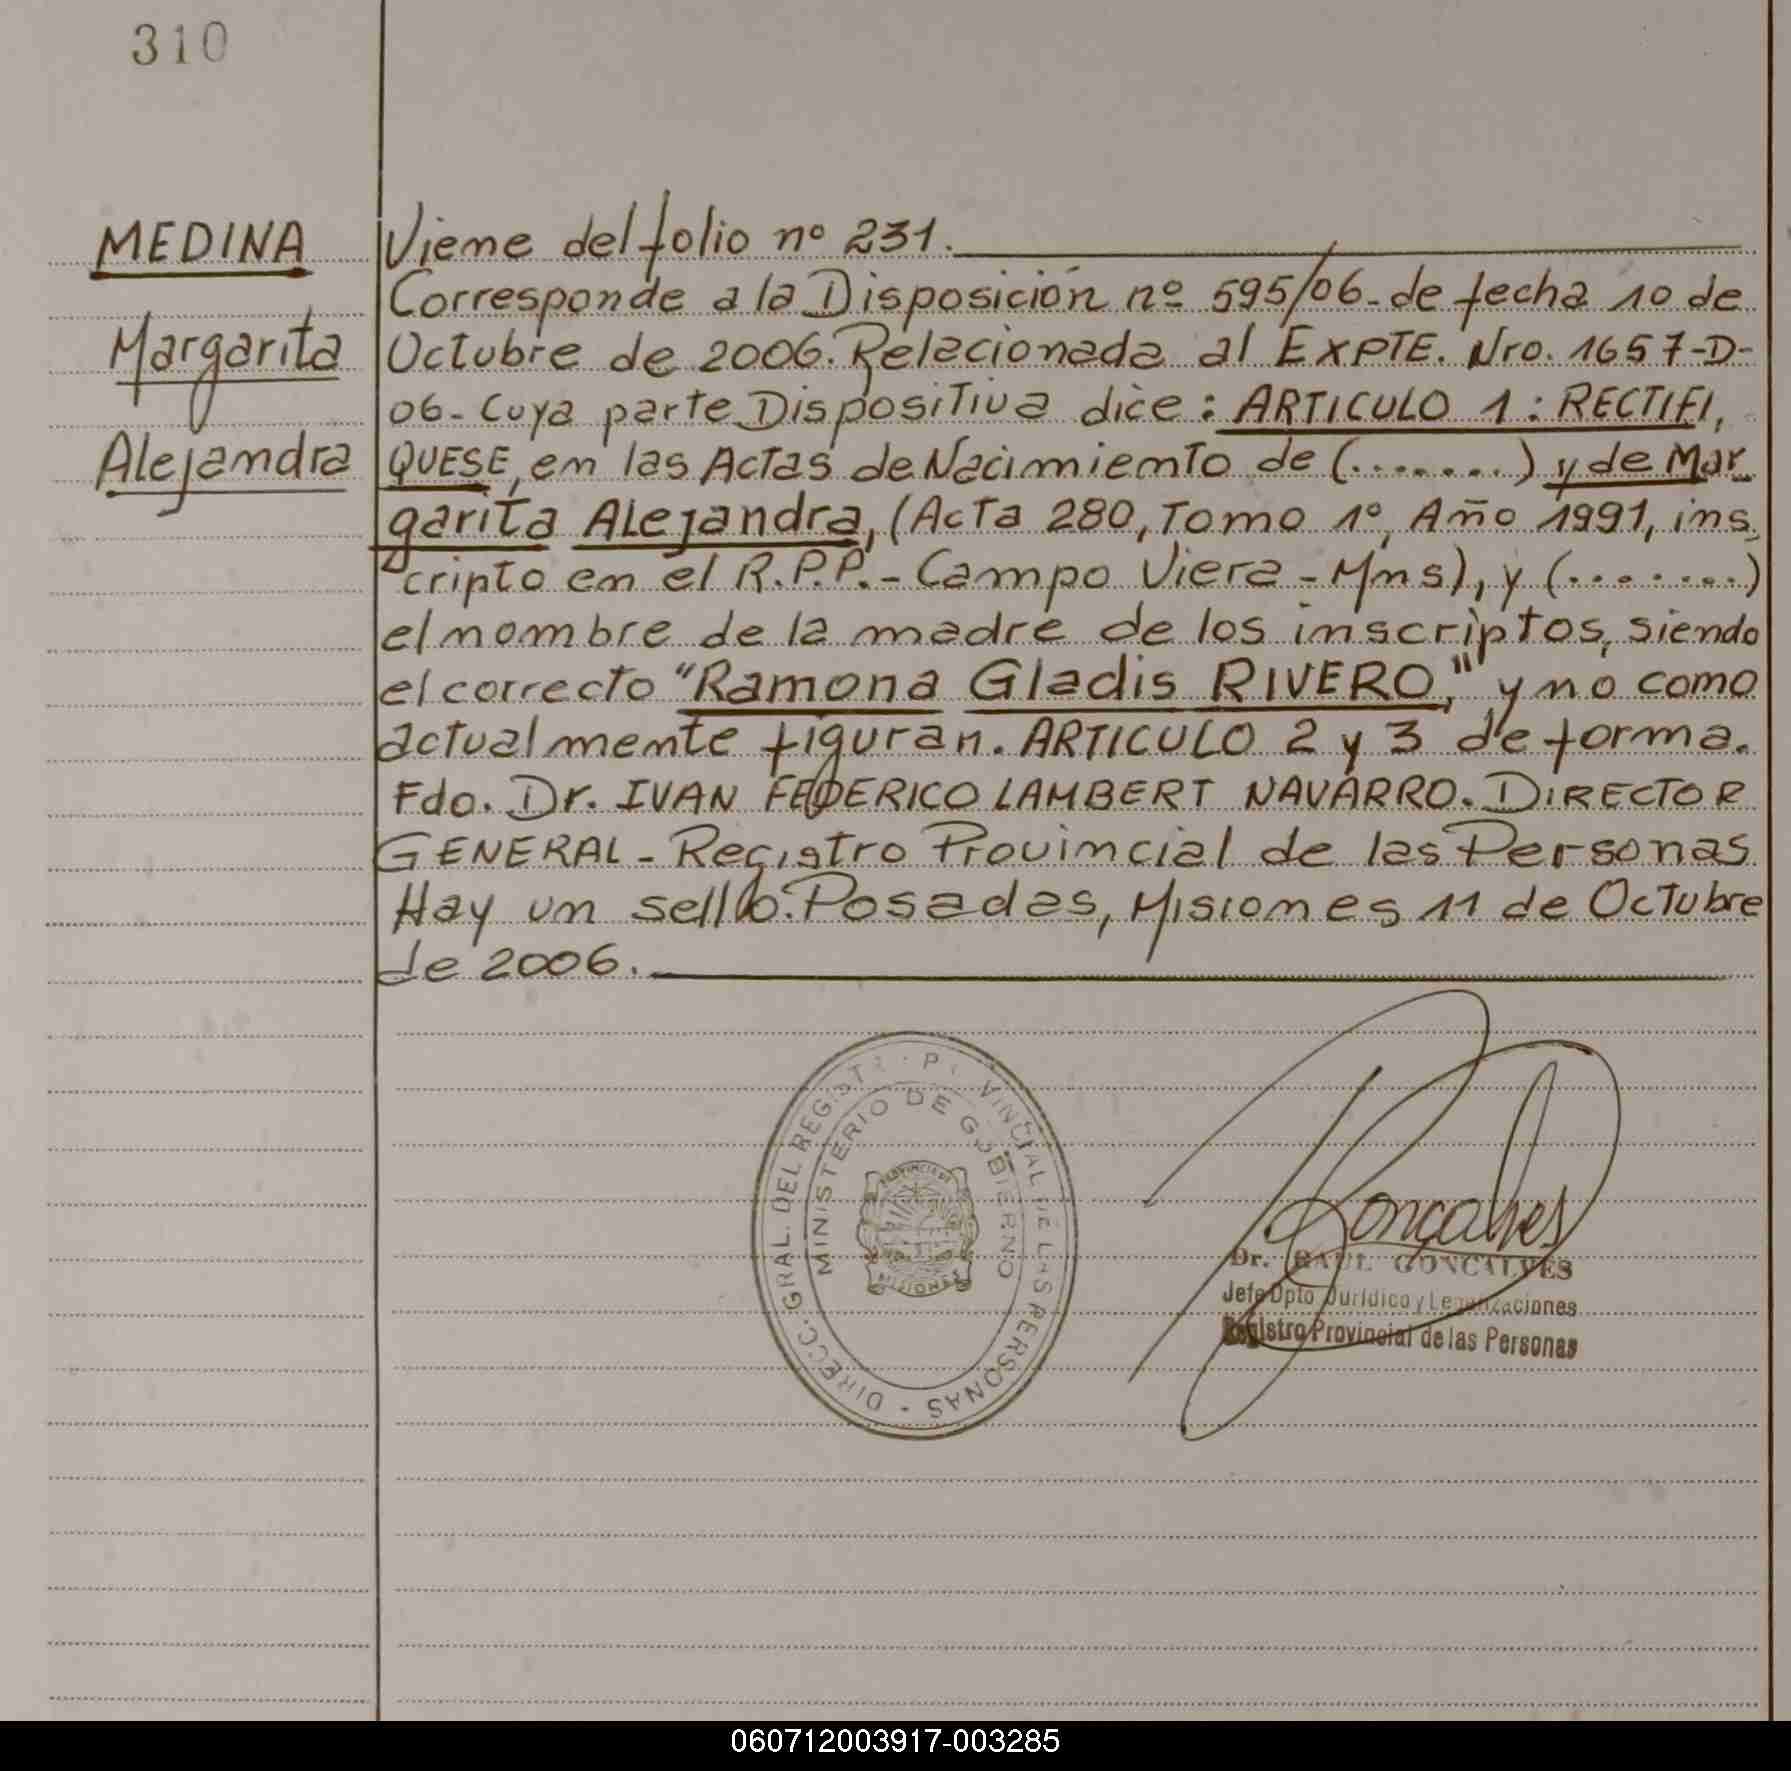 310
MEDINA
Margarita
Alejandra
Viene del folio nº 231.
Corresponde a la Disposición nº 595/06-de fecha 10 de
Octubre de 2006. Relacionada al EXPTE. Nro. 1657-D-
06- Cuya parte Dispositiva dice: ARTICULO 1: RECTIFI,
QUESE, en las Actas de Nacimiento de (.......) y de Mar
garita Alejandra, (Acta 280, Tomo 1º, Año 1991, ins
cripto en el R.P.P.- Campo Viera - Mns), y (.......)
el nombre de la madre de los inscriptos, siendo
el correcto "Ramona Gladis RIVERO," y no como
actualmente figuran. ARTICULO 2 y 3 de forma.
Fdo. Dr. IVAN FEDERICO LAMBERT NAVARRO. DIRECTOR
GENERAL - Registro Provincial de las Personas
Hay un sello. Posadas, Misiones 11 de Octubre
de 2006.
DIRECC. GRAL. DEL REGISTRO PROVINCIAL DE LAS PERSONAS -
MINISTERIO DE GOBIERNO
PROVINCIA DE
MISIONES
Gonçalves
Dr. RAUL GONCALVES
Jefe Dpto Jurídico y Legalizaciones
Registro Provincial de las Personas
060712003917-003285